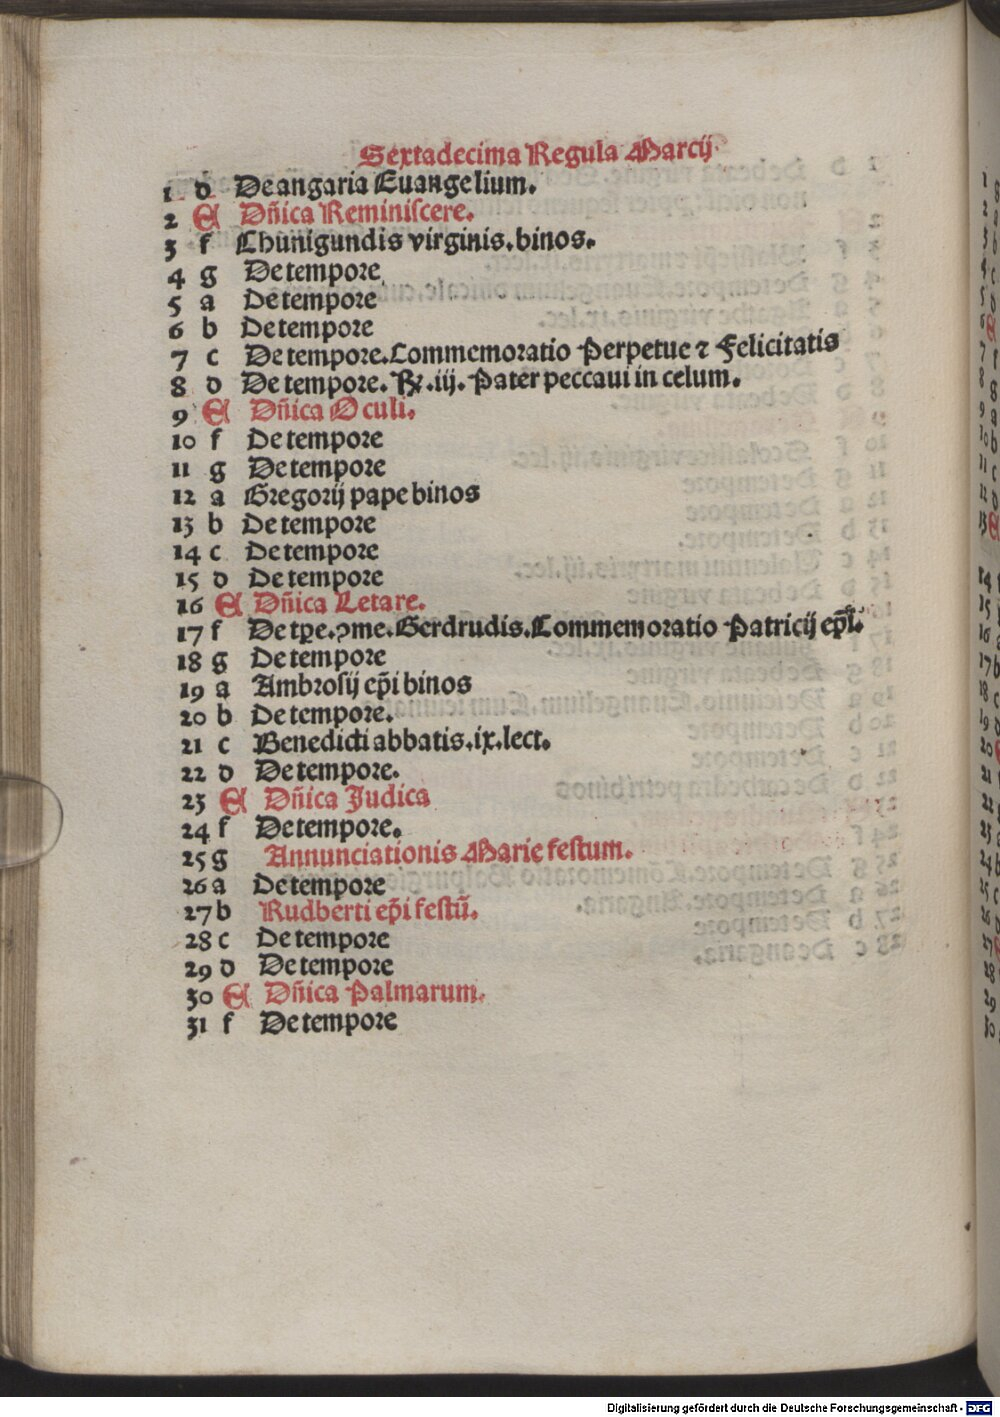 Sextadecima Regula Marcij
1 d De angaria Euangelium.
2 A Dn̄ica Reminiscere.
3 f Chunigundis virginis. binos.
4 g De tempore
5 a De tempore
6 b De tempore
7 c De tempore. Commemoratio Perpetue ⁊ Felicitatis
8 d De tempore. ℟. iij. Pater peccaui in celum.
9 A Dn̄ica Oculi.
10 f De tempore
11 g De tempore
12 a Gregorij pape binos
13 b De tempore
14 c De tempore
15 d De tempore
16 A Dn̄ica Letare.
17 f De tꝑe. ꝯme. Gerdrudis. Commemoratio Patricij ep̄i.
18 g De tempore
19 a Ambrosij ep̄i binos
20 b De tempore.
21 c Benedicti abbatis. ix. lect.
22 d De tempore.
23 A Dn̄ica Judica
24 f De tempore.
25 g Annunciationis Marie festum.
26 a De tempore
27 b Rudberti ep̄i festū.
28 c De tempore
29 d De tempore
30 A Dn̄ica Palmarum.
31 f De tempore
Digitalisierung gefördert durch die Deutsche Forschungsgemeinschaft - DFG